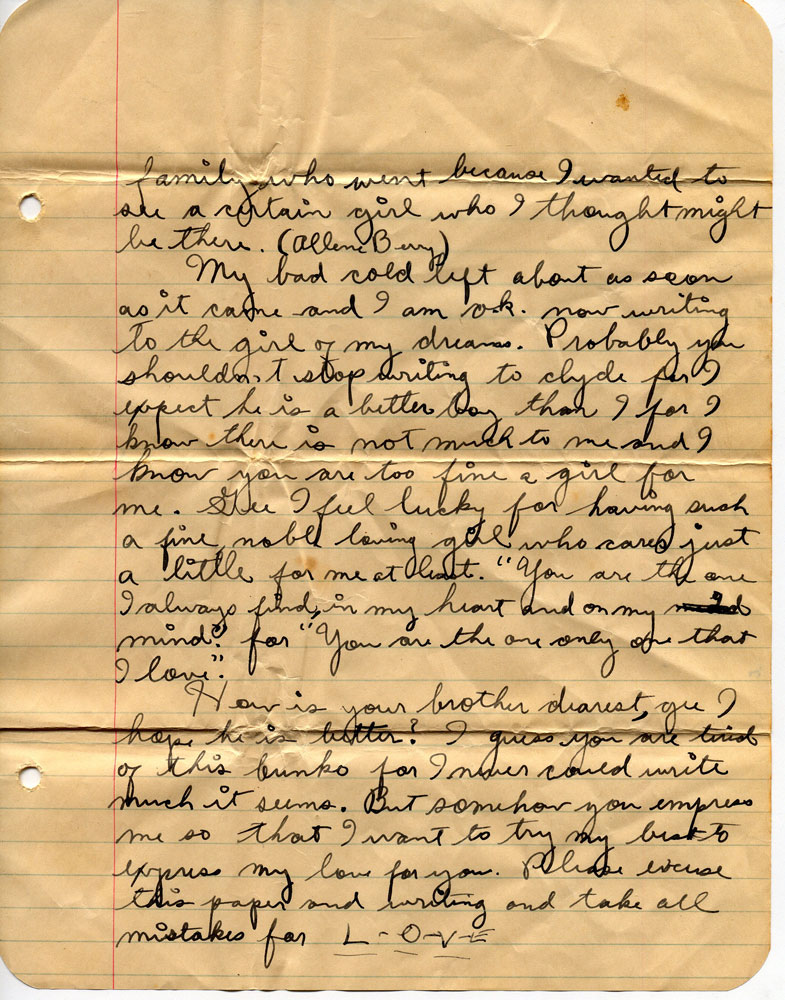 family who went because I wanted to
see a certain girl who I thought might
be there. (Allene Berry)
My bad cold left about as soon
as it came and I am o.k. now writing
to the girl of my dreams. Probably you
shouldn't stop writing to clyde for I
expect he is a better boy than I for I
know there is not much to me and I
know you are too fine a girl for
me. Gee I feel lucky for having such
a fine, noble loving girl who cares just
a little for me at least. "You are the one
I always find, in my heart and on my
mind", for "You are the one only one that
I love".
How is your brother dearest, gee I
hope he is better? I guess you are tired
of this bunko for I never could write
much it seems. But somehow you empress
me so that I want to try my best to
express my love for you. Please excuse
this paper and writing and take all
mistakes for L-O-V-E